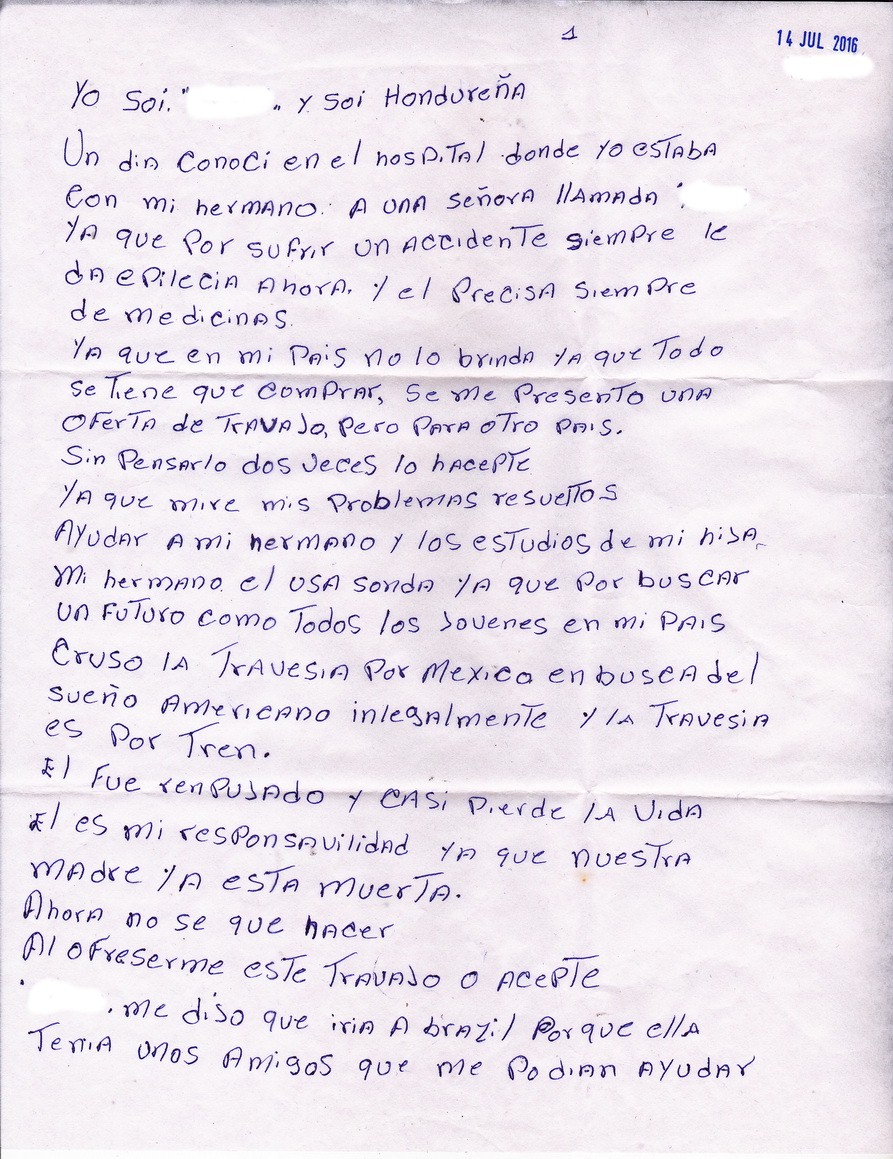 1
14 JUL 2016
Yo Soi. " " y soi Hondureña
Un dia conoci en el hospital donde yo estaba
con mi hermano. A una señora llamada "
ya que por sufrir un accidente siempre le
da epilecia ahora. y el precisa siempre
de medicinas.
ya que en mi pais no lo brinda ya que todo
se tiene que comprar, se me presento una
oferta de travajo, pero para otro pais.
Sin pensarlo dos veces lo hacepte
ya que mire mis problemas resueltos
Ayudar a mi hermano y los estudios de mi hija.
Mi hermano el usa sonda ya que por buscar
un futuro como todos los jovenes en mi pais
Cruso la travesia por Mexico en busca del
sueño Americano inlegalmente y la travesia
es por tren.
El fue renpujado y casi pierde la vida
El es mi responsavilidad ya que nuestra
madre ya esta muerta.
Ahora no se que hacer
Al ofreserme este travajo o acepte
. me dijo que iria a brazil porque ella
Tenia unos amigos que me podian ayudar